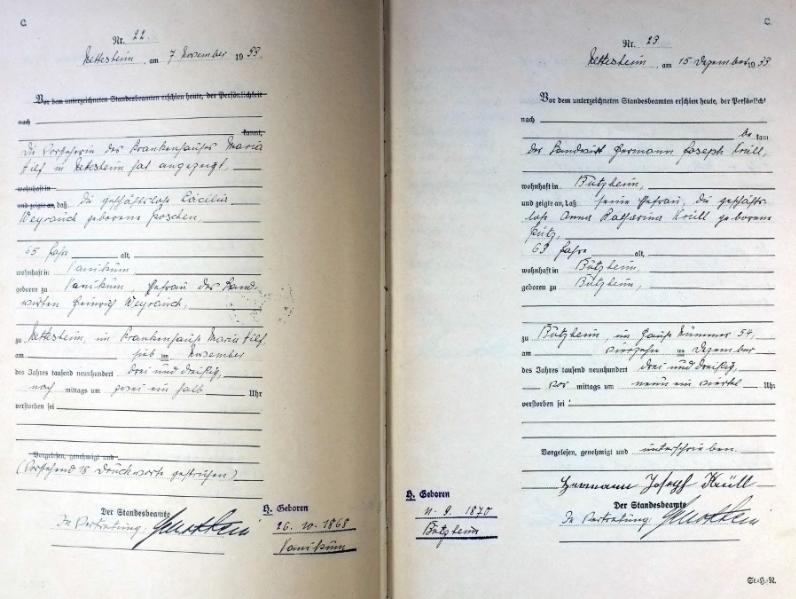 C.
Nr. 22.
Nettesheim, am 7 November 1933.
Vor dem unterzeichneten Standesbeamten erschien heute, der Persönlichkeit
nach
kannt,
Die Vorsteherin des Krankenhauses Maria
Hilf in Nettesheim hat angezeigt,
wohnhaft in
und zeigte an, daß die geschäftslose Cäcilia
Weyrauch geborene
65 Jahre alt,
wohnhaft in Vanikum
geboren zu Vanikum, Ehefrau des Land-
wirten Heinrich Weyrauch,
zu Nettesheim, im Krankenhause Maria Hilf
am November
des Jahres tausend neunhundert drei und dreißig,
nach mittags um ein halb Uhr
verstorben sei
Vorgelesen, genehmigt und
(Vorstehend 18 Druckworte gestrichen)
Der Standesbeamte
In Vertretung:
H. Geboren
26. 10. 1868
Vanikum
C.
Nr. 23
Nettesheim, am 15 Dezember 1933
Vor dem unterzeichneten Standesbeamten erschien heute, der Persönlichkeit
nach
be kannt
der Landwirt Hermann Joseph Krüll,
wohnhaft in Bützheim,
und zeigte an, daß seine Ehefrau, die geschäfts-
lose Anna Katharina Krüll geborene
Pütz,
63 Jahre alt,
wohnhaft in Bützheim,
geboren zu Bützheim,
zu Bützheim, im Hause Nummer 54,
am vierzehn ten Dezember
des Jahres tausend neunhundert drei und dreißig,
vor mittags um neun ein viertel Uhr
verstorben sei:
Vorgelesen, genehmigt und unterschrieben.
Hermann Joseph Krüll
Der Standesbeamte
In Vertretung:
H. Geboren
9. 1870
Bützheim
St.H.R.